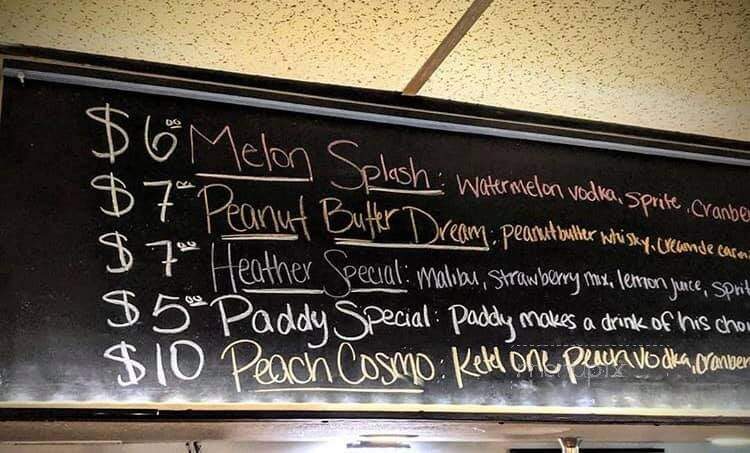 $6.00 Melon Splash: Watermelon vodka, Sprite, Cranbe
$7.00 Peanut Butter Dream: peanutbutter whisky, Creamde
$7.00 Heather Special: malibu, strawberry mix, lemon juice, sprit
$5.00 Paddy Special: Paddy makes a drink of his cho
$10 Peach Cosmo: Ketel one peach vodka, cranber